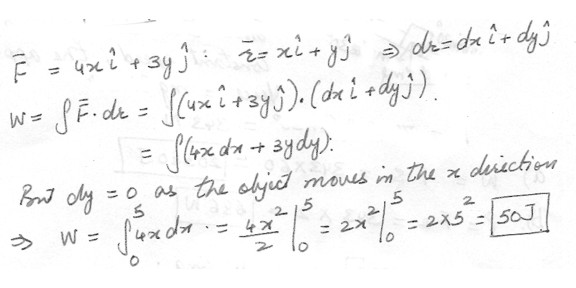 F̄ = 4x î + 3y ĵ : r̄ = x î + y ĵ ⇒ dr = dx î + dy ĵ
W = ∫ F̄ · dr = ∫(4x î + 3y ĵ) · (dx î + dy ĵ).
= ∫(4x dx + 3y dy).
But dy = 0 as the object moves in the x direction
⇒ W = ∫₀⁵ 4x dx · = 4x²/2 |₀⁵ = 2x² |₀⁵ = 2×5² = 50J